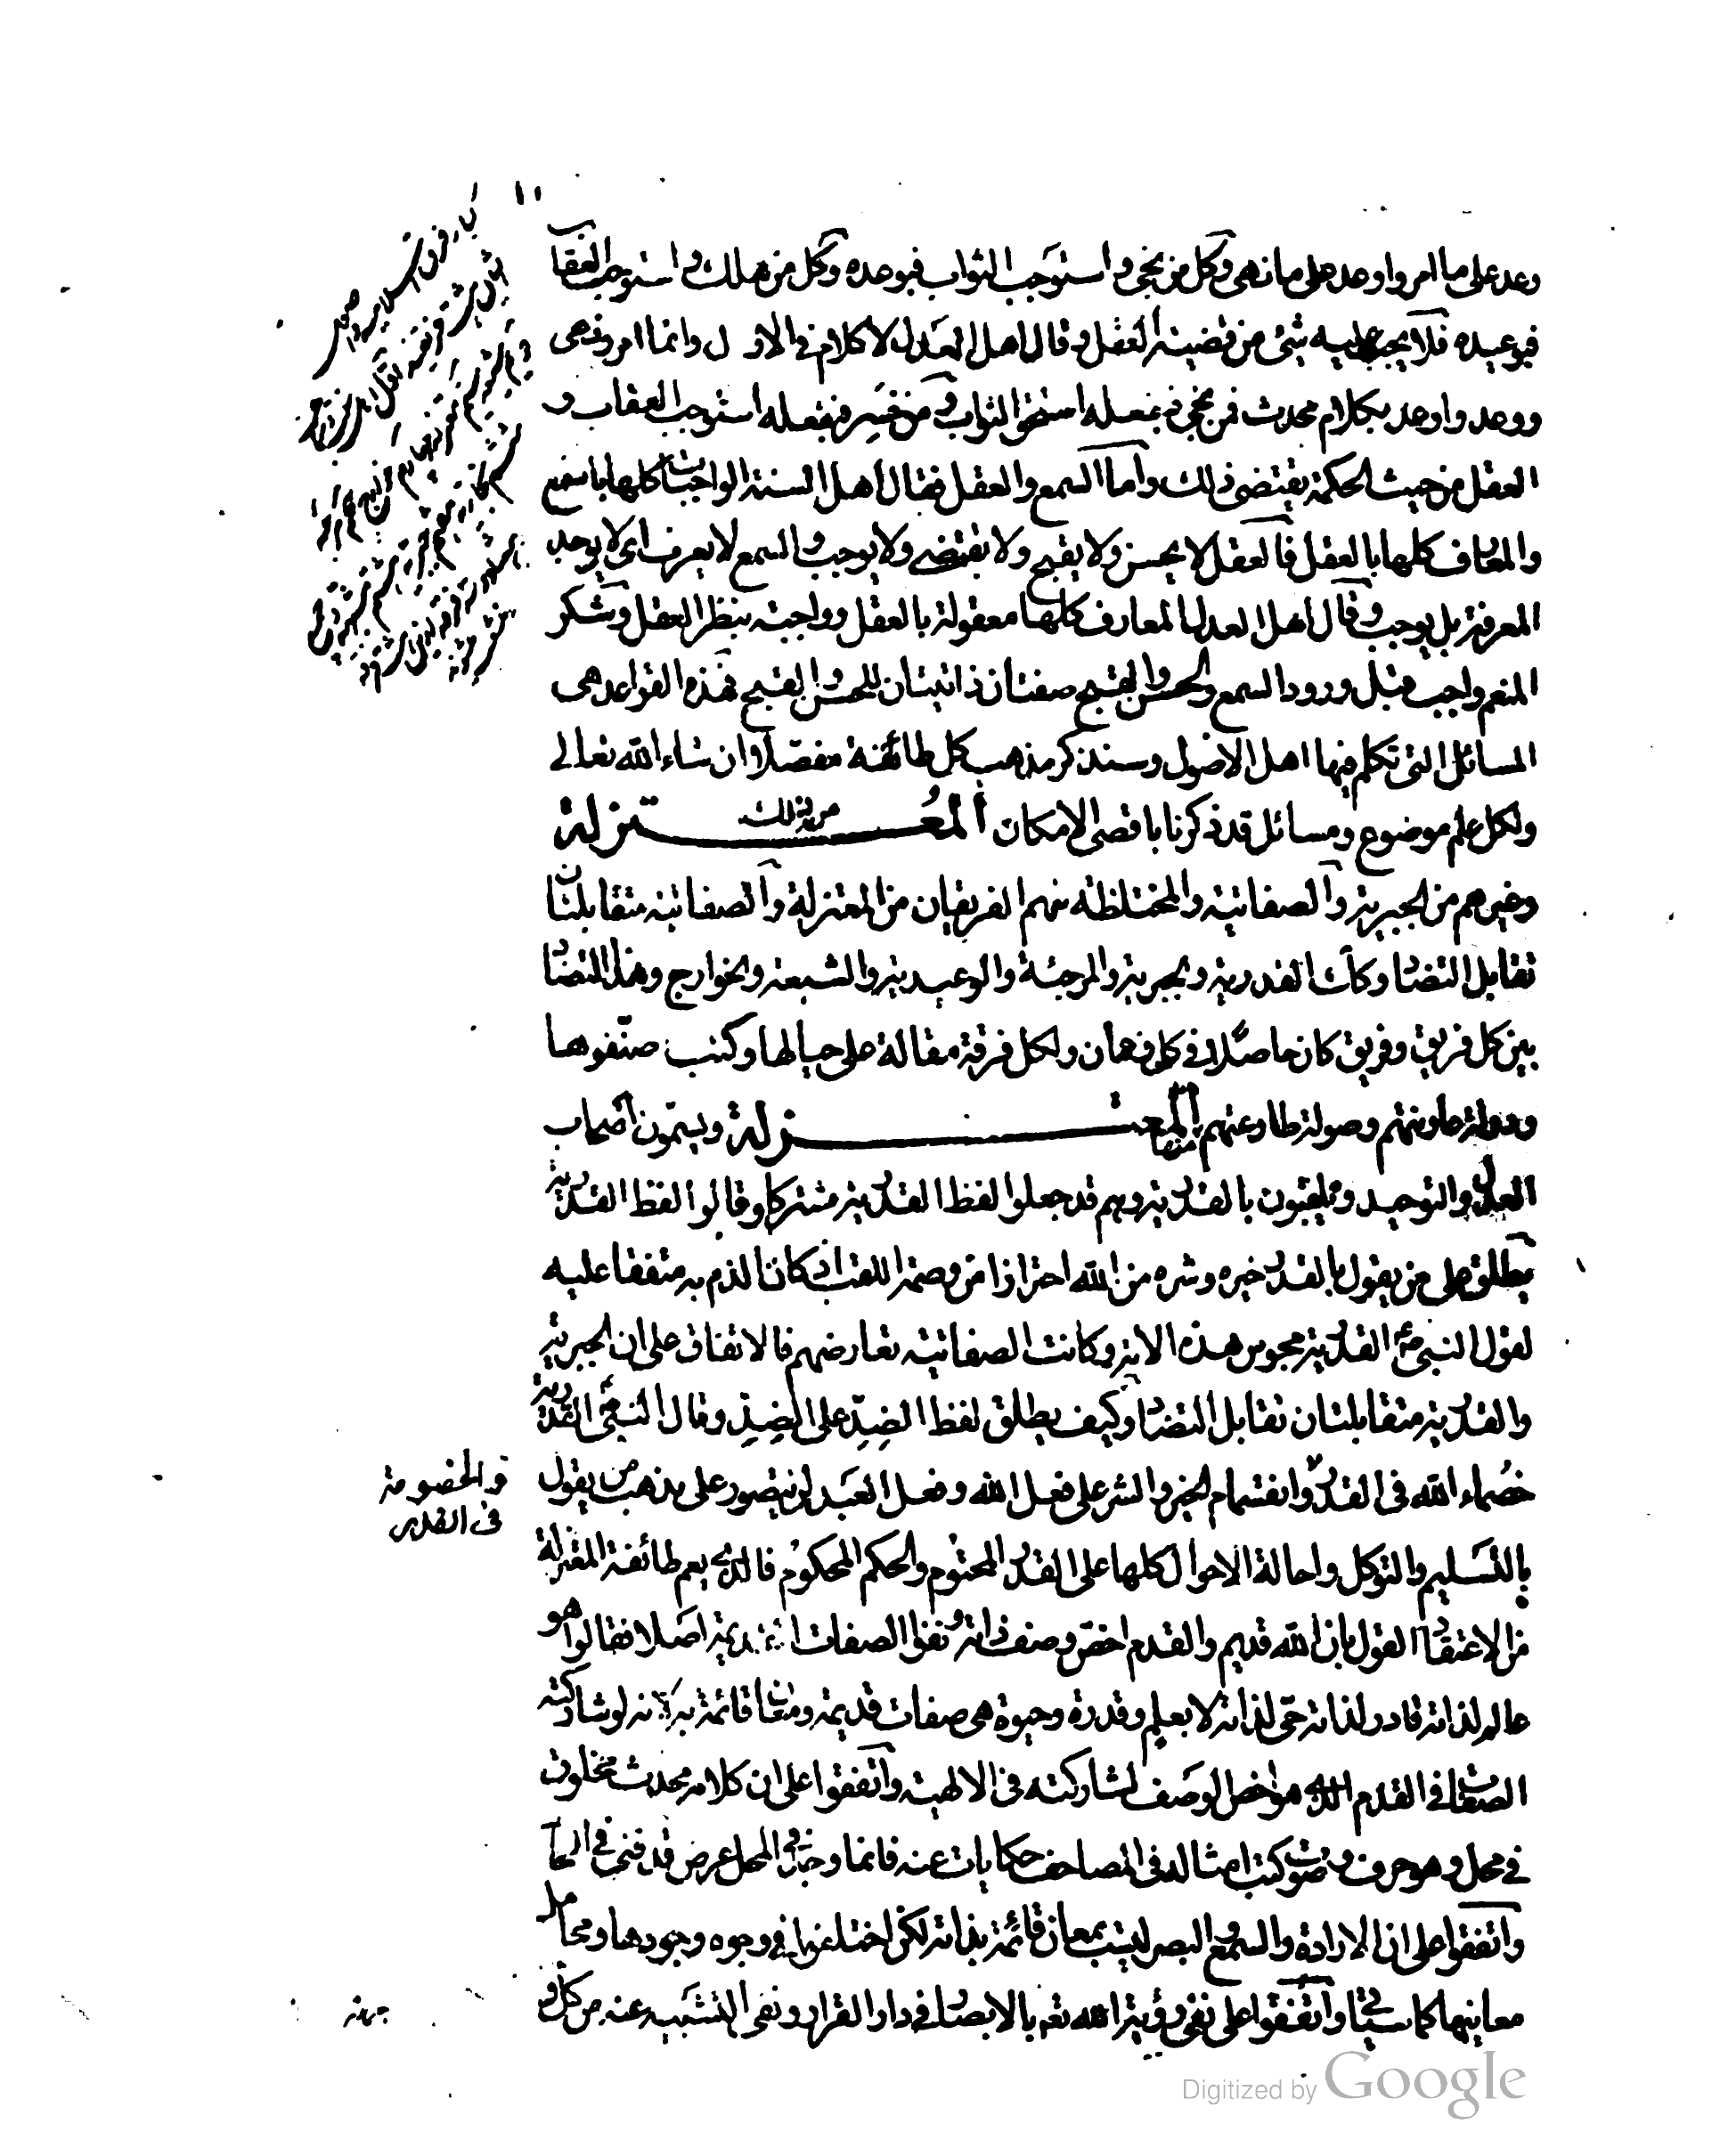 ١١
وعد على ما امر واوعد على ما نهى وكل من نجى و استوجب الثواب فبوعده وكل من هلك و استوجب العقاب
فبوعيده فلا يجب عليه شئ من قضية العقل وقال اهل العدل لا كلام فى الازل وانما امر ونهى
ووعد واوعد بكلام محدث فمن نجى فبفعله استحق الثواب ومن خسر فبفعله استوجب العقاب و
العقل من حيث الحكمة يقتضى ذلك واما السمع والعقل فقال اهل السنة الواجبات كلها بالسمع
والمعارف كلها بالعقل فالعقل لا يحسن ولا يقبح ولا يقتضى ولا يوجب والسمع لا يعرف اى لا يوجد
المعرفة بل يوجب وقال اهل العدل المعارف كلها معقولة بالعقل وواجبة بنظر العقل وشكر
المنعم واجب قبل ورود السمع والحسن والقبح صفتان ذاتيتان للحسن والقبيح فهذه القواعد هى
المسائل التى تكلم فيها اهل الاصول وسنذكر مذهب كل طائفة مفصلا ان شاء الله تعالى
ولكل علم موضوع ومسائل قد ذكرنا باقصى الامكان المعتزلة
وغيرهم من الجبرية والصفاتية والمختلطة منهم الفريقان من المعتزلة والصفاتية متقابلتان
تقابل التضاد وكذلك القدرية والجبرية والمرجئة والوعيدية والشيعة والخوارج وهذا التضاد
بين كل فريق وفريق كان حاصلا فى كل زمان ولكل فرقة مقالة على حيالها وكتب صنفوها
ودولة عاونتهم وصولة طاوعتهم المعتزلة ويسمون اصحاب
العدل والتوحيد ويلقبون بالقدرية وهم قد جعلوا لفظ القدرية مشتركا وقالوا لفظ القدرية
يطلق على من يقول بالقدر خيره وشره من الله احترازا من وصمة اللقب اذ كان الذم به متفقا عليه
لقول النبى عم القدرية مجوس هذه الامة وكانت الصفاتية تعارضهم فالاتفاق على ان الجبرية
والقدرية متقابلتان تقابل التضاد وكيف يطلق لفظ الضد على الضد وقال النبى عم القدرية
خصماء الله فى القدر وانقسام الخير والشر على فعل الله وفعل العبد لن يتصور على مذهب من يقول
والخصومة
فى القدر
بالتسليم والتوكل واحالة الاحوال كلها على القدر المحتوم والحكم المحكوم فالذى يعم طائفة المعتزلة
من الاعتقاد القول بان الله قديم والقدم اخص وصف ذاته ونفوا الصفات القديمة اصلا فقالوا هو
عالم لذاته قادر لذاته حى لذاته لا بعلم وقدرة وحيوة هى صفات قديمة ومعان قائمة به لانه لو شاركته
الصفات فى القدم الذى هو اخص الوصف لشاركته فى الالهية واتفقوا على ان كلامه محدث مخلوق
فى محل وهو حرف وصوت كتب امثاله فى المصاحف حكايات عنه فانما وجد فى المحل عرض قد فنى فى الحال
واتفقوا على ان الارادة والسمع والبصر ليست بمعان قائمة بذاته لكن اختلفوا فى وجوه وجودها ومحامل
معانيها كما سيأتى واتفقوا على نفى رؤية الله تعم بالابصار فى دار القرار ونفى التشبيه عنه من كل و
جهة
Digitized by Google